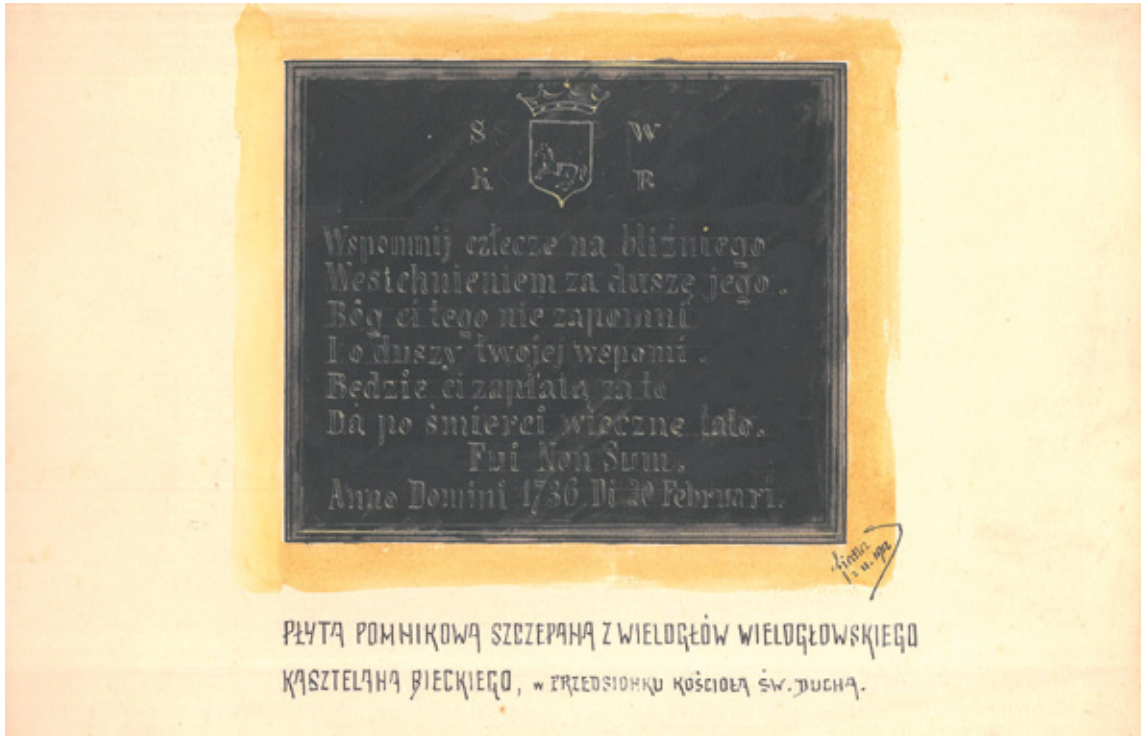 S W
K B
Wspomnij człecze na bliźniego
Westchnieniem za duszę jego.
Bóg ci tego nie zapomni
I o duszy twojej wspomi.
Będzie ci zapłatą za to
Da po śmierci wieczne lato.
Fui Non Sum.
Anno Domini 1736 Di 20 Februari.
1912
PŁYTA POMNIKOWA SZCZEPANA Z WIELOGŁÓW WIELOGŁOWSKIEGO
KASZTELANA BIECKIEGO, w PRZEDSIONKU KOŚCIOŁA ŚW. DUCHA.